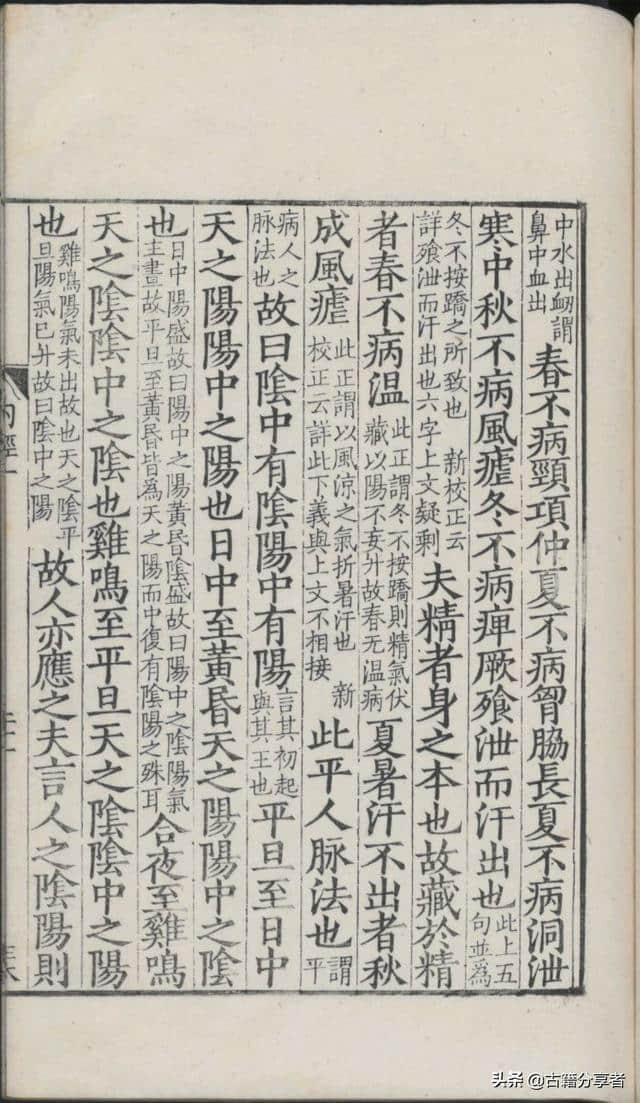 中水出衂謂鼻中血出春不病頸項仲夏不病胷脇長夏不病洞泄
寒中秋不病風瘧冬不病痺厥飱泄而汗出也此上五句並為
冬不按蹻之所致也 新校正云詳飱泄而汗出也六字上文疑剩夫精者身之本也故藏於精
者春不病温此正謂冬不按蹻則精氣伏藏以陽不妄升故春无温病夏暑汗不出者秋
成風瘧此正謂以風涼之氣折暑汗也 新校正云詳此下義與上文不相接此平人脉法也謂平
病人之脉法也故曰陰中有陰陽中有陽言其初起與其王也平旦至日中
天之陽陽中之陽也日中至黄昏天之陽陽中之陰
也日中陽盛故曰陽中之陽黄昏陰盛故曰陽中之陰陽氣主晝故平旦至黄昏皆為天之陽而中復有陰陽之殊耳合夜至雞鳴
天之陰陰中之陰也雞鳴至平旦天之陰陰中之陽
也雞鳴陽氣未出故也天之陰平旦陽氣已升故曰陰中之陽故人亦應之夫言人之陰陽則
内經一
头条 @古籍分享者